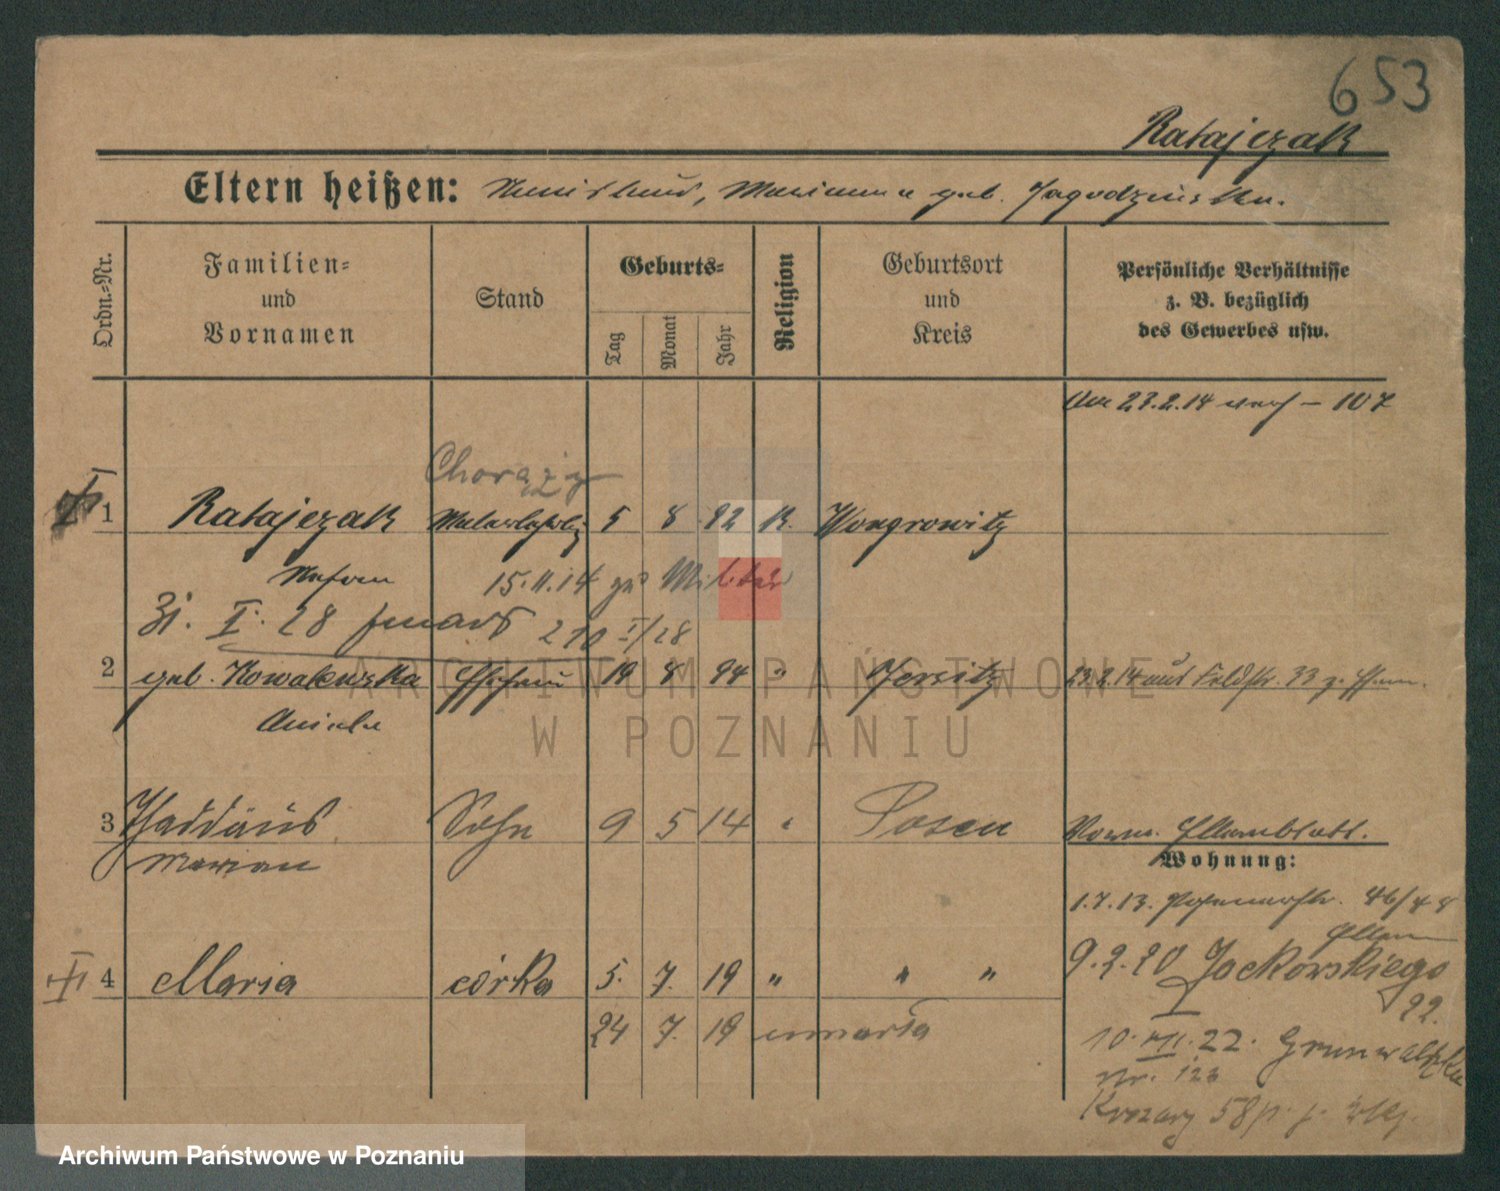 653
Ratajczak
Eltern heißen: Stanislaus, Marianna geb. Jagodzinska.
Ordn.-Nr.
Familien- und Vornamen
Stand
Geburts-
Tag
Monat
Jahr
Religion
Geburtsort und Kreis
Persönliche Verhältnisse z. B. bezüglich des Gewerbes usw.
23.2.14 – 107
Chorąży
1 Ratajczak 5 8 92 K. Wongrowitz
Stefan 15.11.14 zu Militär
I. 28 zmarł 210 I/28
2 geb. Kowalewska Ehefrau 19 8 94 " Jersitz 23.2.14 aus Feldstr. 33 z. Ehem.
Aniela
3 Thaddäus Sohn 9 5 14 " Posen
Marian
Vorm. Elternblatt.
Wohnung:
1.7.13. 46/48
Eltern
4 Maria córka 5. 7. 19 " " "
9.2.20 Jackowskiego
22.
24 7. 19 umarła
10.VII.22. Grunwaldzka
nr. 123
58 p.
ARCHIWUM PAŃSTWOWE
W POZNANIU
Archiwum Państwowe w Poznaniu